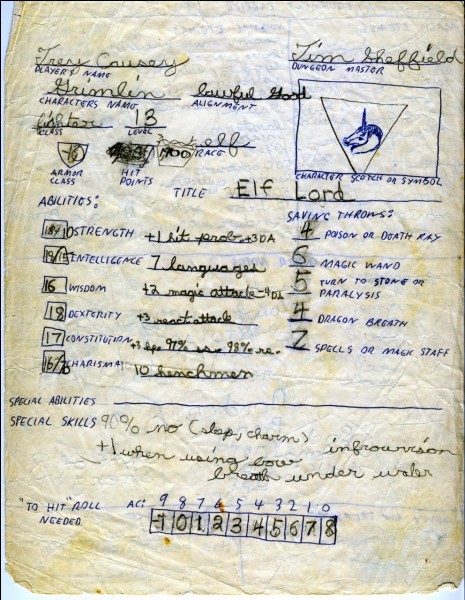 Trey Causey Tim Sheffield
PLAYER'S NAME DUNGEON MASTER
Grimlin lawful good
CHARACTERS NAME ALIGNMENT
fightar 13 elf
CLASS LEVEL RACE
ARMOR CLASS HIT POINTS
CHARACTER SKETCH OR SYMBOL
TITLE Elf Lord
ABILITIES: SAVING THROWS:
STRENGTH +1 hit prob +3DA 4 POISON OR DEATH RAY
INTELLIGENCE 7 languages 6 MAGIC WAND
16 WISDOM +2 magic attack 5 TURN TO STONE OR PARALYSIS
18 DEXTERITY +3 react attack 4 DRAGON BREATH
17 CONSTITUTION +3 hp 97% ss 98% re. SPELLS OR MAGIC STAFF
CHARISMA 10 henchmen
SPECIAL ABILITIES
SPECIAL SKILLS 90% no (slep, charm) infrourvision
+1 when using bow
breath under water
"TO HIT" ROLL AC: 9 8 7 6 5 4 3 2 1 0
NEEDED -1 0 1 2 3 4 5 6 7 8